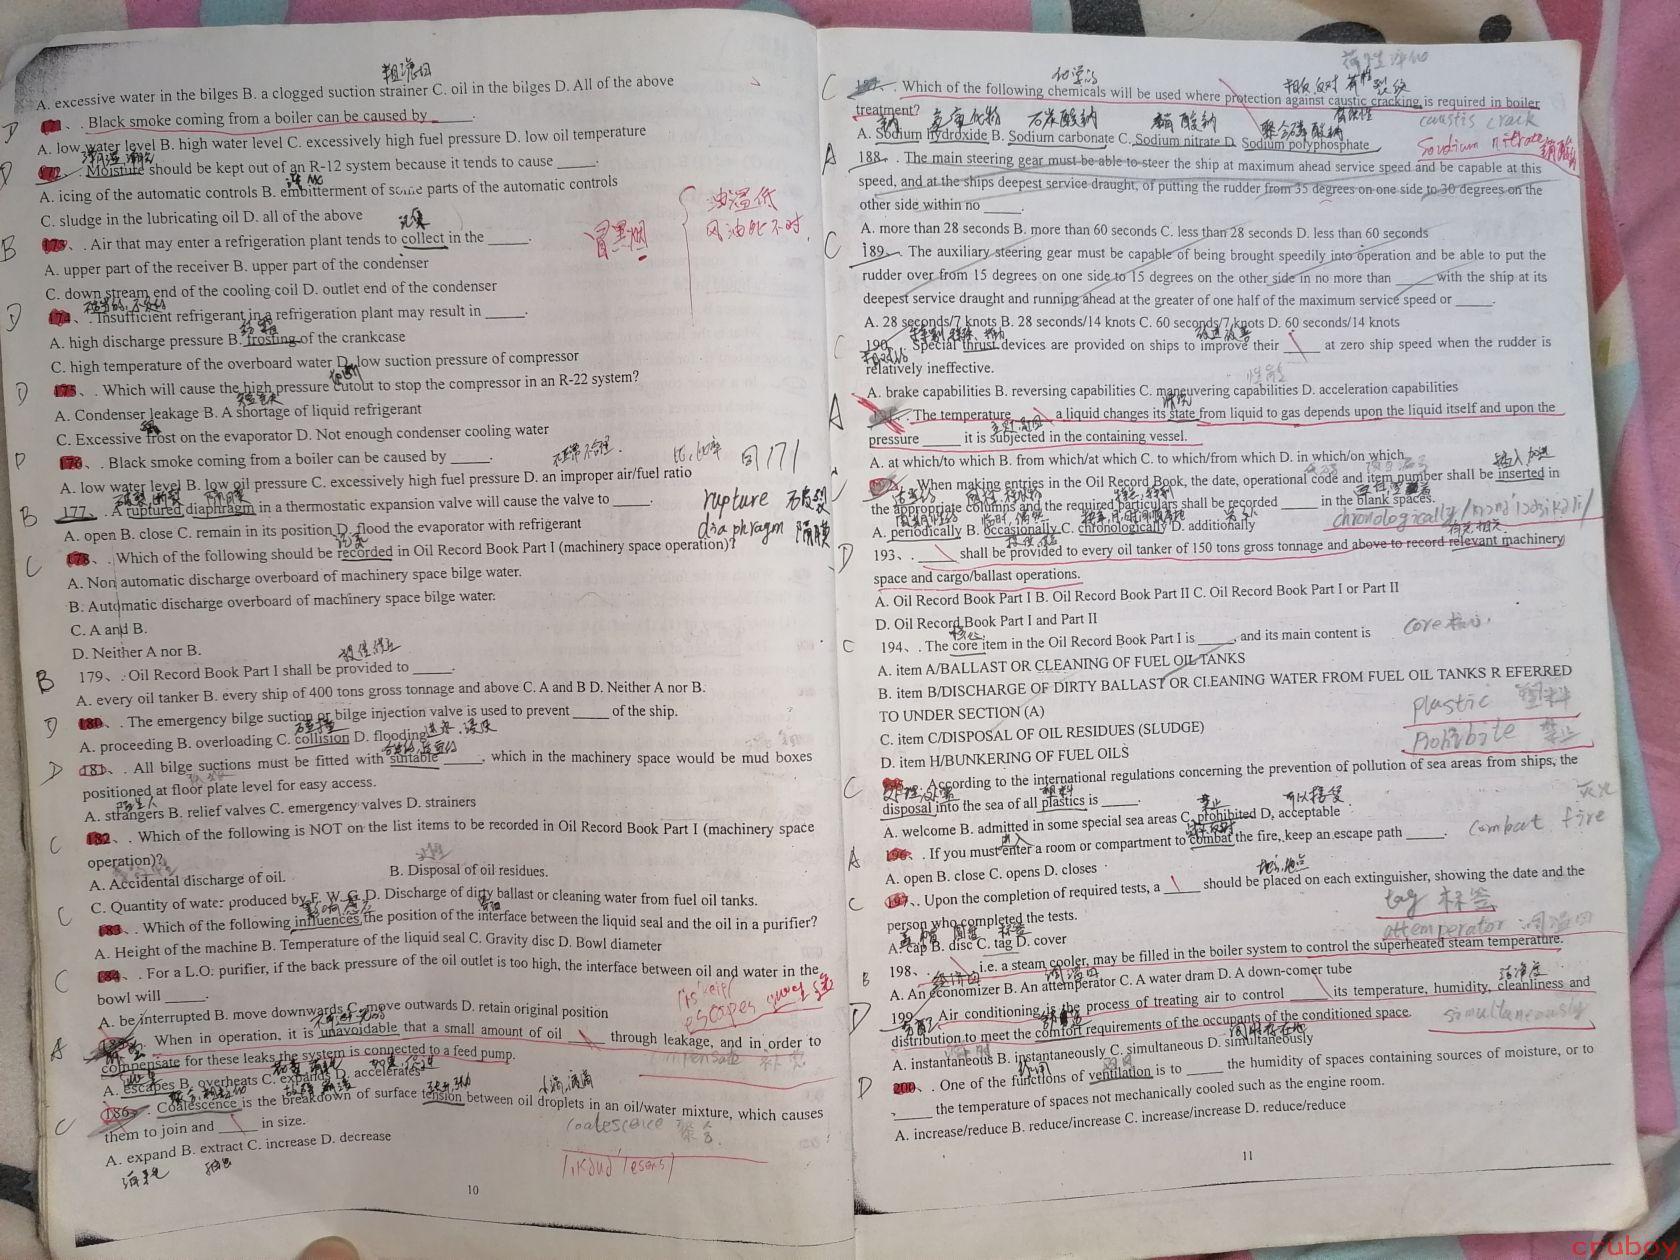 A. excessive water in the bilges B. a clogged suction strainer C. oil in the bilges D. All of the above
D 171、. Black smoke coming from a boiler can be caused by _____.
A. low water level B. high water level C. excessively high fuel pressure D. low oil temperature
D 172、. Moisture should be kept out of an R-12 system because it tends to cause _____.
A. icing of the automatic controls B. embitterment of some parts of the automatic controls
C. sludge in the lubricating oil D. all of the above
冒黑烟
油温低
风油比不对
B 173、. Air that may enter a refrigeration plant tends to collect in the _____.
A. upper part of the receiver B. upper part of the condenser
C. down stream end of the cooling coil D. outlet end of the condenser
D 174、. Insufficient refrigerant in a refrigeration plant may result in _____.
A. high discharge pressure B. frosting of the crankcase
C. high temperature of the overboard water D. low suction pressure of compressor
D 175、. Which will cause the high pressure cutout to stop the compressor in an R-22 system?
A. Condenser leakage B. A shortage of liquid refrigerant
C. Excessive frost on the evaporator D. Not enough condenser cooling water
D 176、. Black smoke coming from a boiler can be caused by _____.
同171
A. low water level B. low oil pressure C. excessively high fuel pressure D. an improper air/fuel ratio
B 177、. A ruptured diaphragm in a thermostatic expansion valve will cause the valve to _____.
rupture 破裂
diaphragm 隔膜
A. open B. close C. remain in its position D. flood the evaporator with refrigerant
记录
C 178、. Which of the following should be recorded in Oil Record Book Part I (machinery space operation)?
A. Non automatic discharge overboard of machinery space bilge water.
B. Automatic discharge overboard of machinery space bilge water.
C. A and B.
D. Neither A nor B.
B 179、. Oil Record Book Part I shall be provided to _____.
A. every oil tanker B. every ship of 400 tons gross tonnage and above C. A and B D. Neither A nor B.
D 180、. The emergency bilge suction or bilge injection valve is used to prevent _____ of the ship.
碰撞
A. proceeding B. overloading C. collision D. flooding
D 181、. All bilge suctions must be fitted with suitable _____, which in the machinery space would be mud boxes
positioned at floor plate level for easy access.
陌生人
A. strangers B. relief valves C. emergency valves D. strainers
C 182、. Which of the following is NOT on the list items to be recorded in Oil Record Book Part I (machinery space
operation)?
A. Accidental discharge of oil. B. Disposal of oil residues.
C. Quantity of water produced by F. W. G. D. Discharge of dirty ballast or cleaning water from fuel oil tanks.
C 183、. Which of the following influences the position of the interface between the liquid seal and the oil in a purifier?
A. Height of the machine B. Temperature of the liquid seal C. Gravity disc D. Bowl diameter
C 184、. For a L.O. purifier, if the back pressure of the oil outlet is too high, the interface between oil and water in the
bowl will _____.
A. be interrupted B. move downwards C. move outwards D. retain original position
escapes
A 185、. When in operation, it is unavoidable that a small amount of oil _____ through leakage, and in order to
compensate for these leaks the system is connected to a feed pump.
compensate 补充
A. escapes B. overheats C. expands D. accelerates
C 186、. Coalescence is the breakdown of surface tension between oil droplets in an oil/water mixture, which causes
them to join and _____ in size.
coalescence 聚合
A. expand B. extract C. increase D. decrease
10
C 187、. Which of the following chemicals will be used where protection against caustic cracking is required in boiler
treatment?
caustic crack
A. Sodium hydroxide B. Sodium carbonate C. Sodium nitrate D. Sodium polyphosphate
Soudium nitrate 硝酸钠
A 188、. The main steering gear must be able to steer the ship at maximum ahead service speed and be capable at this
speed, and at the ships deepest service draught, of putting the rudder from 35 degrees on one side to 30 degrees on the
other side within no _____.
A. more than 28 seconds B. more than 60 seconds C. less than 28 seconds D. less than 60 seconds
C 189、. The auxiliary steering gear must be capable of being brought speedily into operation and be able to put the
rudder over from 15 degrees on one side to 15 degrees on the other side in no more than _____ with the ship at its
deepest service draught and running ahead at the greater of one half of the maximum service speed or _____.
A. 28 seconds/7 knots B. 28 seconds/14 knots C. 60 seconds/7 knots D. 60 seconds/14 knots
C 190、. Special thrust devices are provided on ships to improve their _____ at zero ship speed when the rudder is
relatively ineffective.
A. brake capabilities B. reversing capabilities C. maneuvering capabilities D. acceleration capabilities
A 191、. The temperature _____ a liquid changes its state from liquid to gas depends upon the liquid itself and upon the
pressure _____ it is subjected in the containing vessel.
A. at which/to which B. from which/at which C. to which/from which D. in which/on which
192、. When making entries in the Oil Record Book, the date, operational code and item number shall be inserted in
the appropriate columns and the required particulars shall be recorded _____ in the blank spaces.
A. periodically B. occasionally C. chronologically D. additionally
chronologically
D 193、. _____ shall be provided to every oil tanker of 150 tons gross tonnage and above to record relevant machinery
space and cargo/ballast operations.
A. Oil Record Book Part I B. Oil Record Book Part II C. Oil Record Book Part I or Part II
D. Oil Record Book Part I and Part II
C 194、. The core item in the Oil Record Book Part I is _____, and its main content is
A. item A/BALLAST OR CLEANING OF FUEL OIL TANKS
B. item B/DISCHARGE OF DIRTY BALLAST OR CLEANING WATER FROM FUEL OIL TANKS R EFERRED
TO UNDER SECTION (A)
C. item C/DISPOSAL OF OIL RESIDUES (SLUDGE)
D. item H/BUNKERING OF FUEL OILS
plastic 塑料
Prohibate 禁止
C 195、. According to the international regulations concerning the prevention of pollution of sea areas from ships, the
disposal into the sea of all plastics is _____.
禁止 可以接受
A. welcome B. admitted in some special sea areas C. prohibited D, acceptable
A 196、. If you must enter a room or compartment to combat the fire, keep an escape path _____.
combat fire
灭火
A. open B. close C. opens D. closes
C 197、. Upon the completion of required tests, a _____ should be placed on each extinguisher, showing the date and the
person who completed the tests.
tag 标签
A. cap B. disc C. tag D. cover
attemperator 调温器
B 198、. _____ i.e. a steam cooler, may be filled in the boiler system to control the superheated steam temperature.
A. An economizer B. An attemperator C. A water dram D. A down-comer tube
D 199、. Air conditioning is the process of treating air to control _____ its temperature, humidity, cleanliness and
distribution to meet the comfort requirements of the occupants of the conditioned space.
simultaneously
A. instantaneous B. instantaneously C. simultaneous D. simultaneously
D 200、. One of the functions of ventilation is to _____ the humidity of spaces containing sources of moisture, or to
_____ the temperature of spaces not mechanically cooled such as the engine room.
A. increase/reduce B. reduce/increase C. increase/increase D. reduce/reduce
11
cruboy